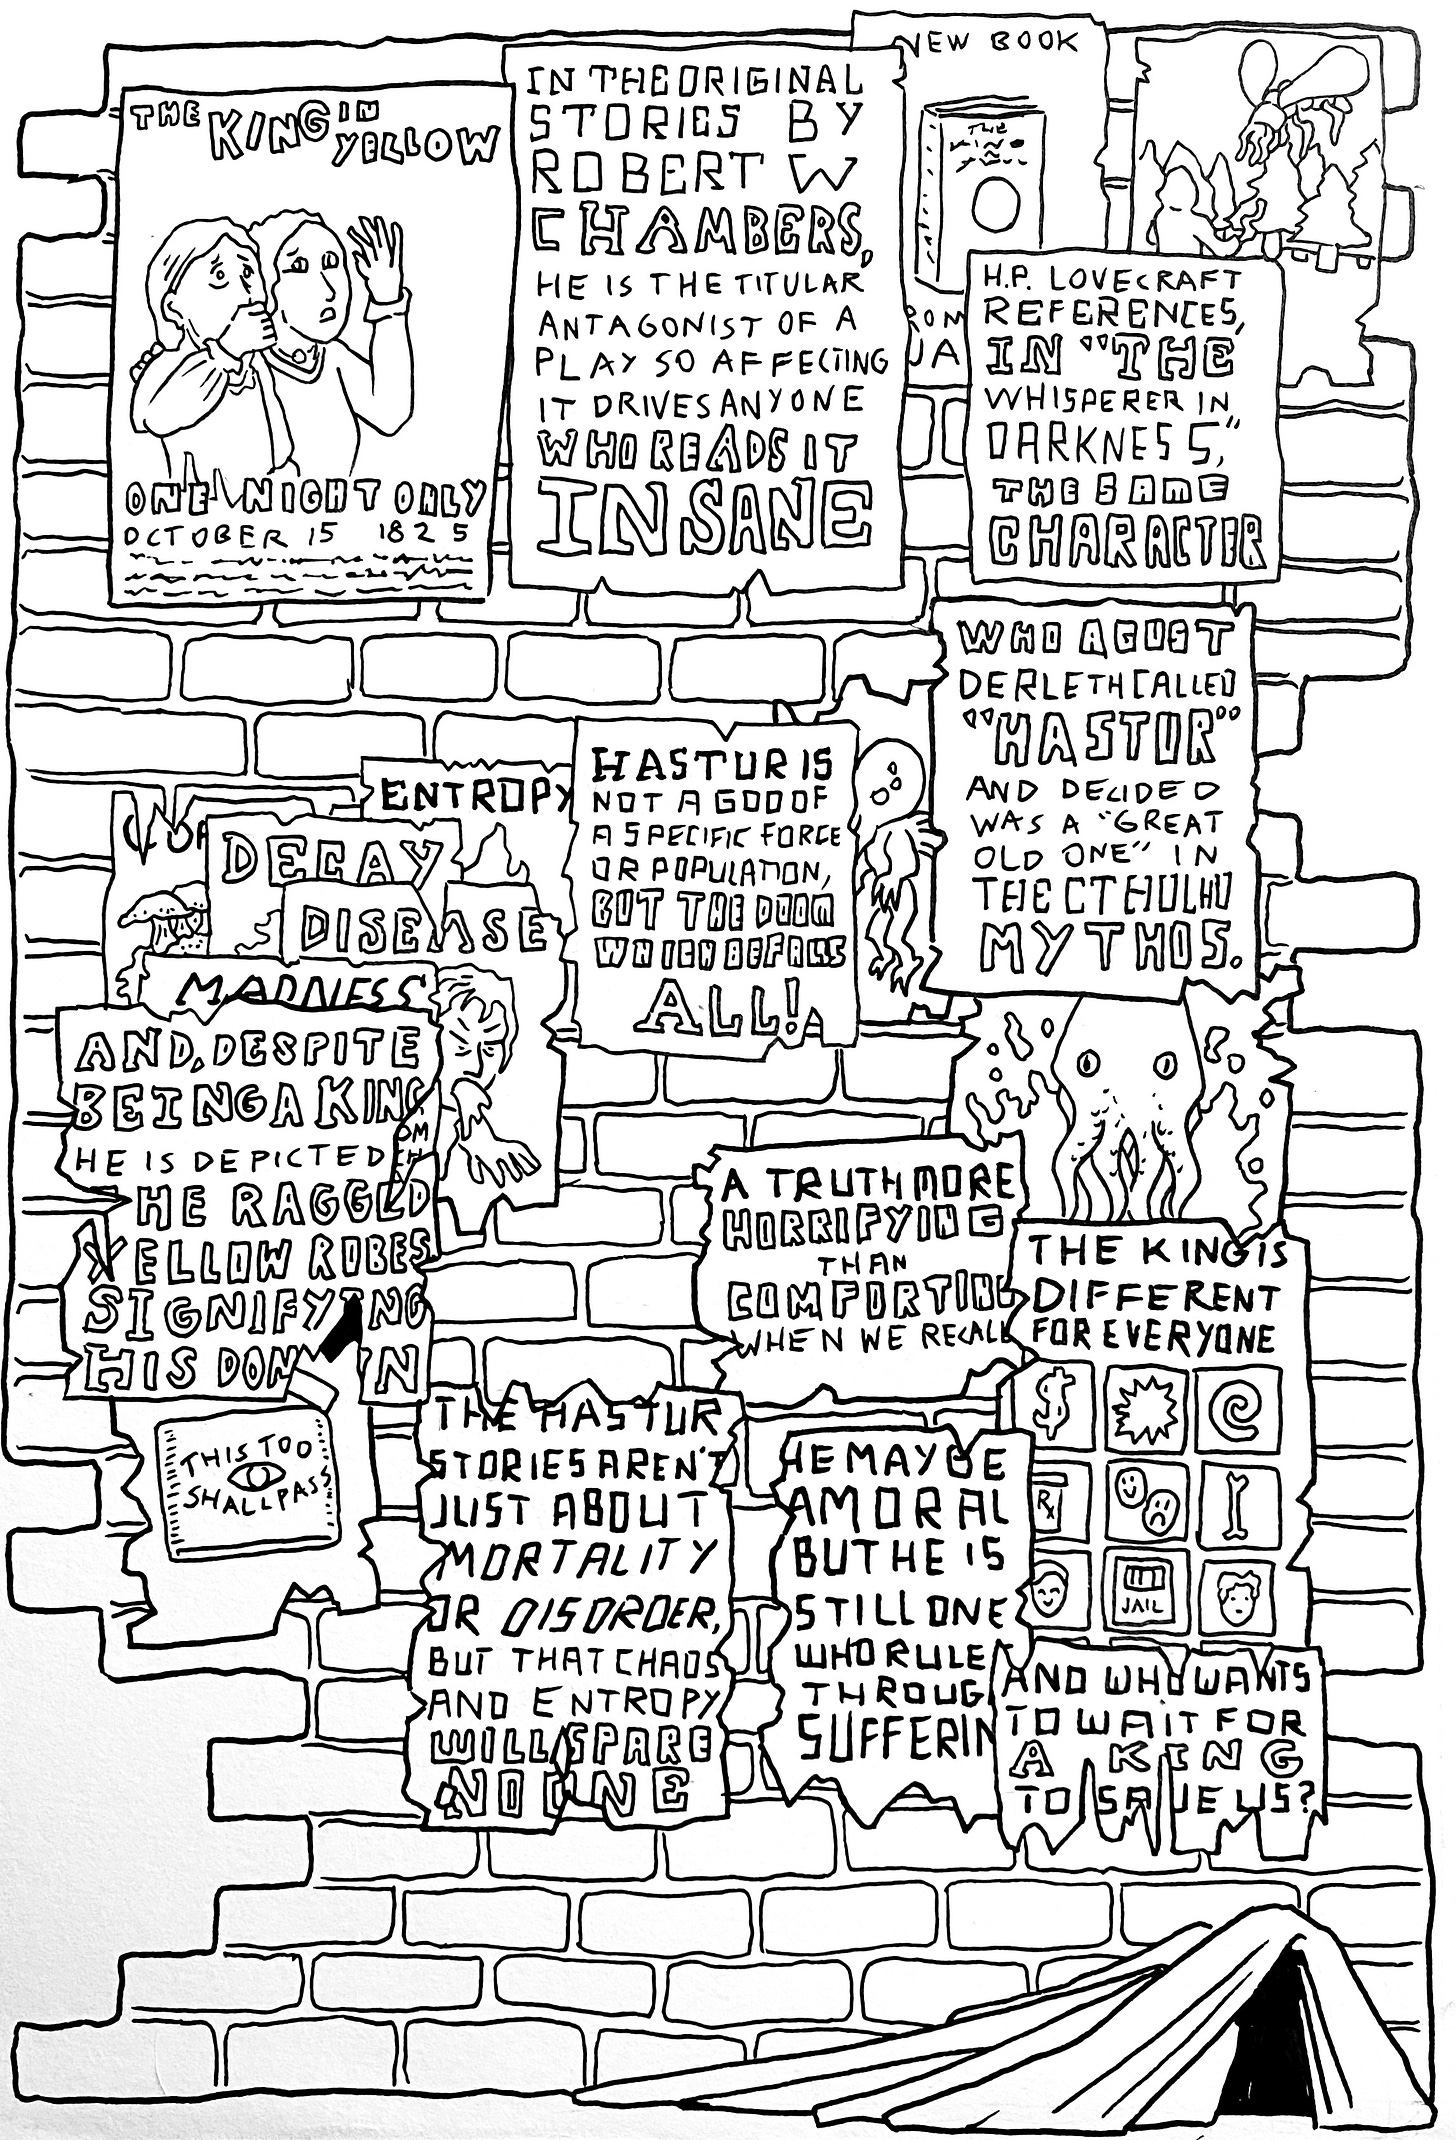 THE KING IN
YELLOW
ONE NIGHT ONLY
OCTOBER 15 1825
IN THE ORIGINAL
STORIES BY
ROBERT W
CHAMBERS,
HE IS THE TITULAR
ANTAGONIST OF A
PLAY SO AFFECTING
IT DRIVES ANYONE
WHO READS IT
INSANE
NEW BOOK
THE
KING IN
YELLOW
H.P. LOVECRAFT
REFERENCES,
IN "THE
WHISPERER IN
DARKNESS",
THE SAME
CHARACTER
WHO AGUST
DERLETH CALLED
"HASTUR"
AND DECIDED
WAS A "GREAT
OLD ONE" IN
THE CTHULHU
MYTHOS.
HASTUR IS
NOT A GOD OF
A SPECIFIC FORCE
OR POPULATION,
BUT THE DOOM
WHICH BEFALLS
ALL!
ENTROPY
DECAY
DISEASE
MADNESS
AND, DESPITE
BEING A KING
HE IS DEPICTED
HE RAGGED
YELLOW ROBES
SIGNIFYING
HIS DOM IN
THIS TOO
SHALL PASS
THE HASTUR
STORIES AREN'T
JUST ABOUT
MORTALITY
OR DISORDER,
BUT THAT CHAOS
AND ENTROPY
WILL SPARE
NO ONE
A TRUTH MORE
HORRIFYING
THAN
COMFORTING
WHEN WE RECALL
THE KING IS
DIFFERENT
FOR EVERYONE
$
RX
JAIL
HE MAY BE
AMORAL
BUT HE IS
STILL ONE
WHO RULE
THROUG
SUFFERIN
AND WHO WANTS
TO WAIT FOR
A KING
TO SAVE US?